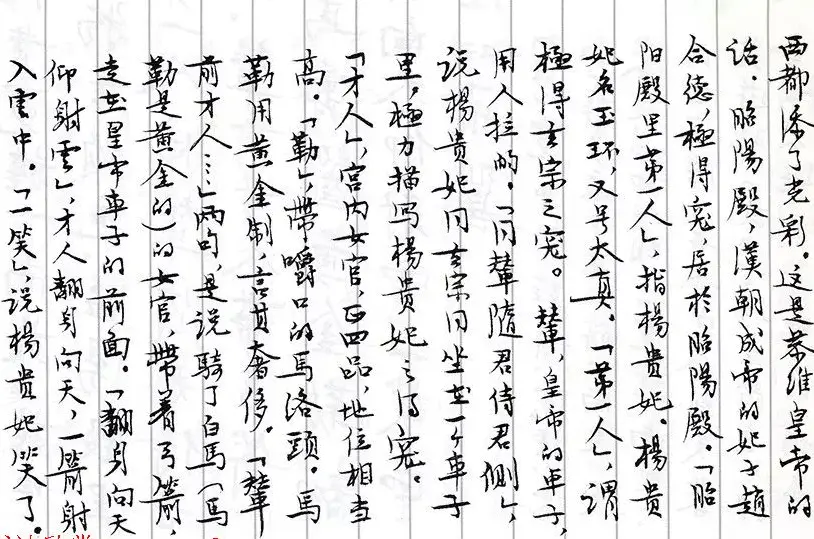 西都添了光彩。这是恭维皇帝的
话。昭陽殿,漢朝成帝的妃子趙
合德,極得宠,居於昭陽殿。「昭
阳殿里第一人」,指楊貴妃。楊貴
妃名玉环,又号太真。「第一人」,谓
極得玄宗之宠。輦,皇帝的車子,
用人拉的。「同輦隨君侍君側」,
说楊貴妃同玄宗同坐在一个車子
里,極力描写楊貴妃之得宠。
「才人」,宮内女官,正四品,地位相当
高。「勒」,帶嚼口的馬洛頭。馬
勒用黄金制,言其奢侈。「輦
前才人…」两句,是说騎了白馬(馬
勒是黄金的)的女官,帶着弓箭,
走在皇帝車子的前面。「翻身向天
仰射雲」,才人翻身向天,一箭射
入雲中。「一笑」,说楊貴妃笑了。